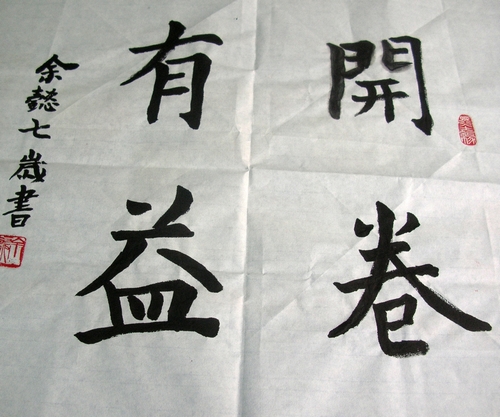 開卷
有益
余懿七歲書